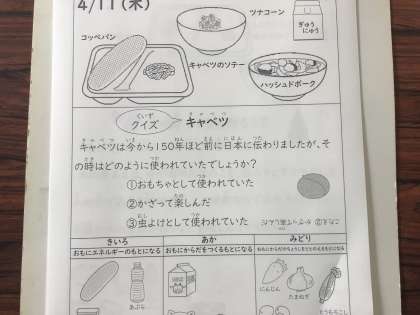 4/11(木)
ツナコーン
ぎゅう
にゅう
コッペパン
キャベツのソテー
ハッシュドポーク
クイズ キャベツ
キャベツは今から150年ほど前に日本に伝わりましたが、そ
の時はどのように使われていたでしょうか?
①おもちゃとして使われていた
②かざって楽しんだ
③虫よけとして使われていた
こたえ ②かざって楽しんだ
きいろ あか みどり
おもにエネルギーのもとになる おもにからだをつくるもとになる おもにからだのちょうしをととのえるもとになる
あぶら
にんじん
たまねぎ
とうもろこし